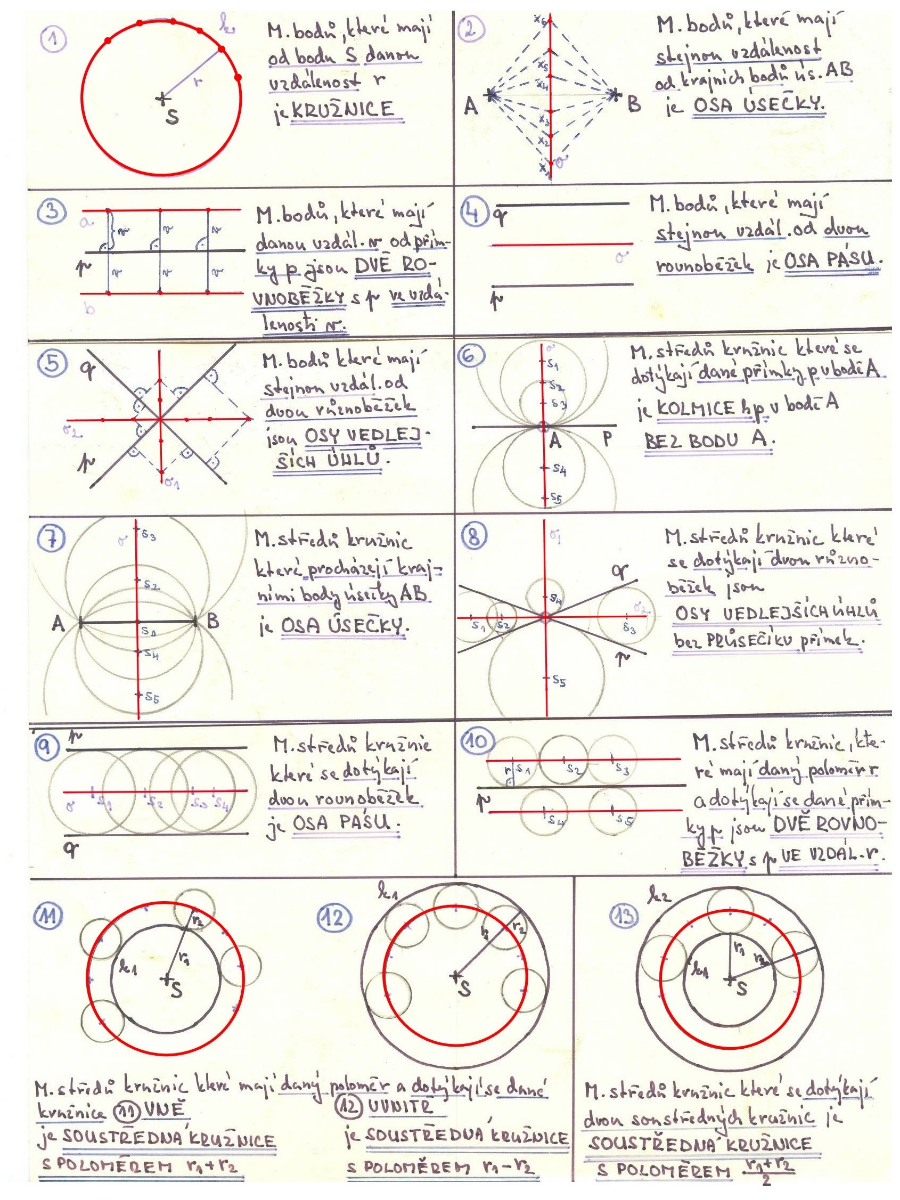 1
k
r
S
M. bodů, které mají
od bodu S danou
vzdálenost r
je KRUŽNICE
2
x6
x5
x4
A
B
x3
x2
x1
o
M. bodů, které mají
stejnou vzdálenost
od krajních bodů ús. AB
je OSA ÚSEČKY.
3
a
p
b
M. bodů, které mají
danou vzdál. v od přím-
ky p jsou DVĚ RO-
VNOBĚŽKY s p ve vzdá-
lenosti v.
4
q
o
p
M. bodů, které mají
stejnou vzdál. od dvou
rovnoběžek je OSA PÁSU.
5
q
o2
p
o1
M. bodů které mají
stejnou vzdál. od
dvou různoběžek
jsou OSY VEDLEJ-
ŠÍCH ÚHLŮ.
6
o
S1
S2
S3
A
P
S4
S5
M. středů kružnic které se
dotýkají dané přímky p v bodě A
je KOLMICE k p v bodě A
BEZ BODU A.
7
o
S3
S2
A
B
S1
S4
S5
M. středů kružnic
které procházejí kraj-
ními body úsečky AB
je OSA ÚSEČKY.
8
o1
q
S4
o2
S1
S2
S3
p
S5
M. středů kružnic které
se dotýkají dvou různo-
běžek jsou
OSY VEDLEJŠÍCH ÚHLŮ
bez PRŮSEČÍKU přímek.
9
p
o
S1
S2
S3
S4
q
M. středů kružnic
které se dotýkají
dvou rovnoběžek
je OSA PÁSU.
10
r
S1
S2
S3
p
S4
S5
M. středů kružnic, kte-
ré mají daný poloměr r
a dotýkají se dané přím-
ky p jsou DVĚ ROVNO-
BĚŽKY s p VE VZDÁL. r.
11
r2
r1
k1
S
12
k1
r1
r2
S
13
k2
r1
r2
k1
S
M. středů kružnic které mají daný poloměr a dotýkají se dané
kružnice 11 VNĚ
je SOUSTŘEDNÁ KRUŽNICE
S POLOMĚREM r1+r2
12 UVNITŘ
je SOUSTŘEDNÁ KRUŽNICE
S POLOMĚREM r1-r2
M. středů kružnic které se dotýkají
dvou soustředných kružnic je
SOUSTŘEDNÁ KRUŽNICE
S POLOMĚREM r1+r2
2